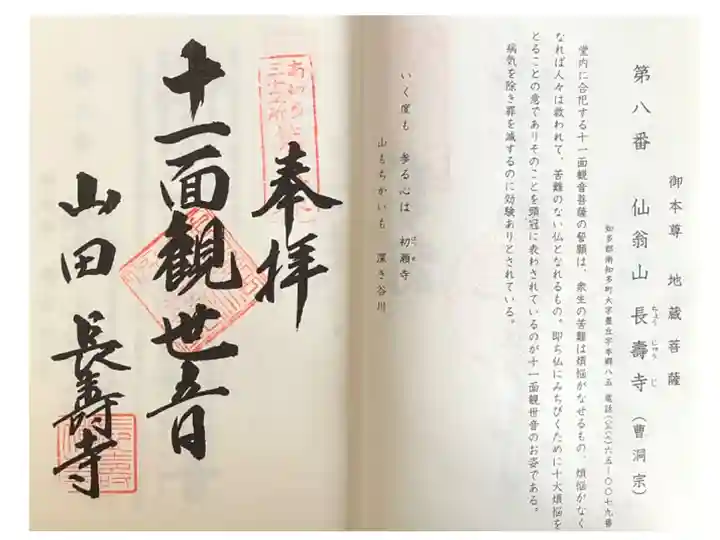 御本尊 地蔵菩薩
第八番 仙翁山 長壽寺(曹洞宗)
ちょう じゅう じ
知多郡南知多町大字豊丘字本郷八五 電話(〇五六九)六五―〇〇七九番
堂内に合祀する十一面観音菩薩の誓願は、衆生の苦難は煩悩がなせるもの、煩悩がなく
なれば人々は救われて、苦難のない仏となれるもの。即ち仏にみちびくために十大煩悩を
とることの意でありそのことを頭冠に表わされているのが十一面観世音のお姿である。
病気を除き罪を滅するのに効験ありとされている。
いく度も 参る心は 初瀬寺
はせ
山もちかいも 深き谷川
奉拝
十一面観世音
山田 長壽寺